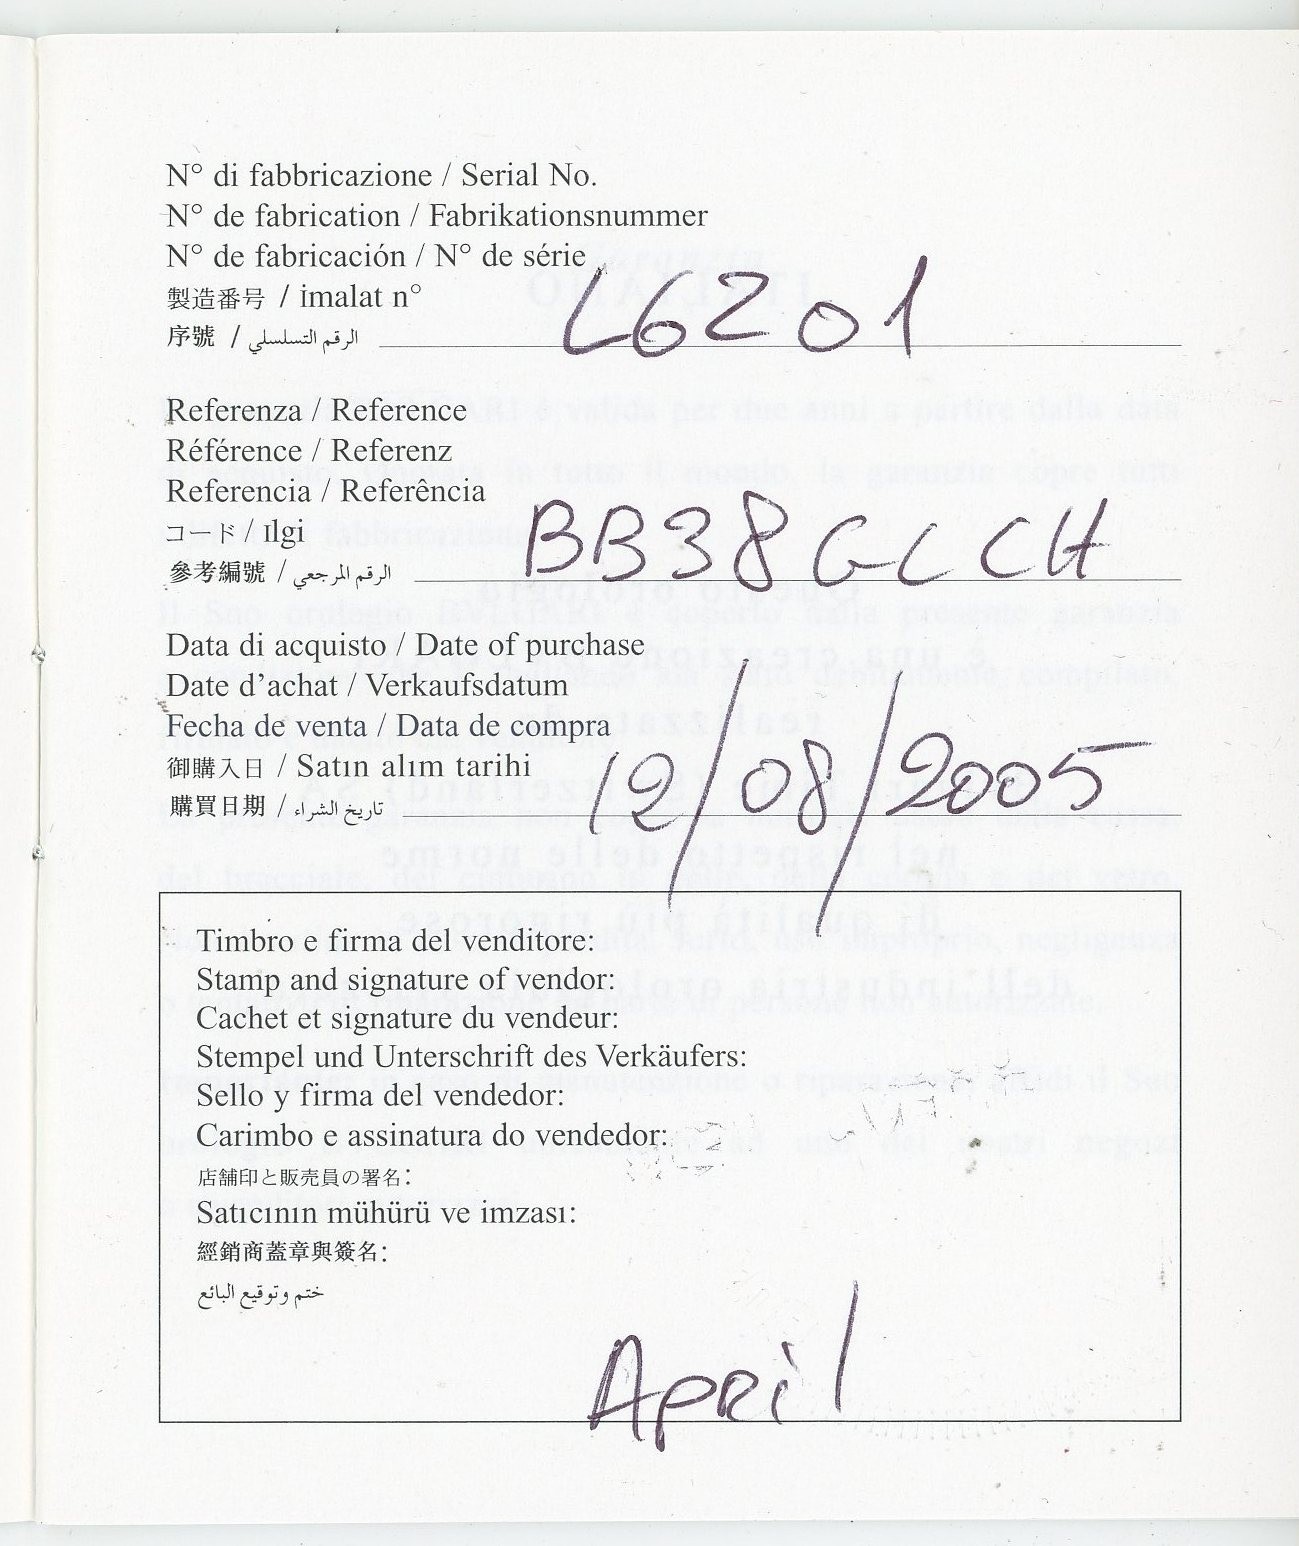 N° di fabbricazione / Serial No.
N° de fabrication / Fabrikationsnummer
N° de fabricación / N° de série
製造番号 / imalat n°
序號 / الرقم التسلسلي L6201
Referenza / Reference
Référence / Referenz
Referencia / Referência
コード / Ilgi
參考編號 / الرقم المرجعي BB38GLCH
Data di acquisto / Date of purchase
Date d'achat / Verkaufsdatum
Fecha de venta / Data de compra
御購入日 / Satın alım tarihi
購買日期 / تاريخ الشراء 12/08/2005
Timbro e firma del venditore:
Stamp and signature of vendor:
Cachet et signature du vendeur:
Stempel und Unterschrift des Verkäufers:
Sello y firma del vendedor:
Carimbo e assinatura do vendedor:
店舗印と販売員の署名:
Satıcının mühürü ve imzası:
經銷商蓋章與簽名:
ختم وتوقيع البائع
April